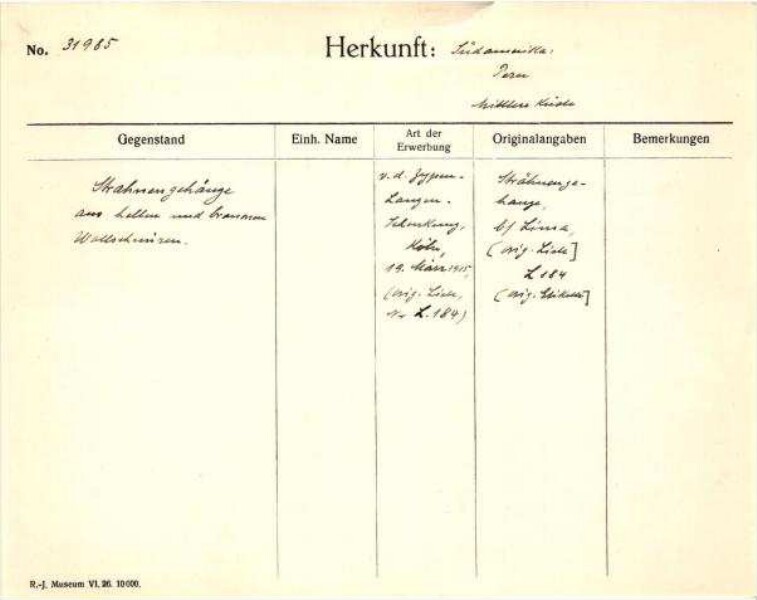 No. 31985
Herkunft: Südamerika:
Peru
Mittlere Küste
Gegenstand
Einh. Name
Art der Erwerbung
Originalangaben
Bemerkungen
Strähnengehänge
aus hellen und braunen
Wollschnüren.
v. d. Zypen-
Langen.
Schenkung,
Köln,
19. März 1915,
(orig. Liste,
Nr L. 184)
Strähnenge-
hänge,
b/ Lima,
(orig. Liste]
L 184
(orig. Etikette]
R.-J. Museum VI. 26. 10000.